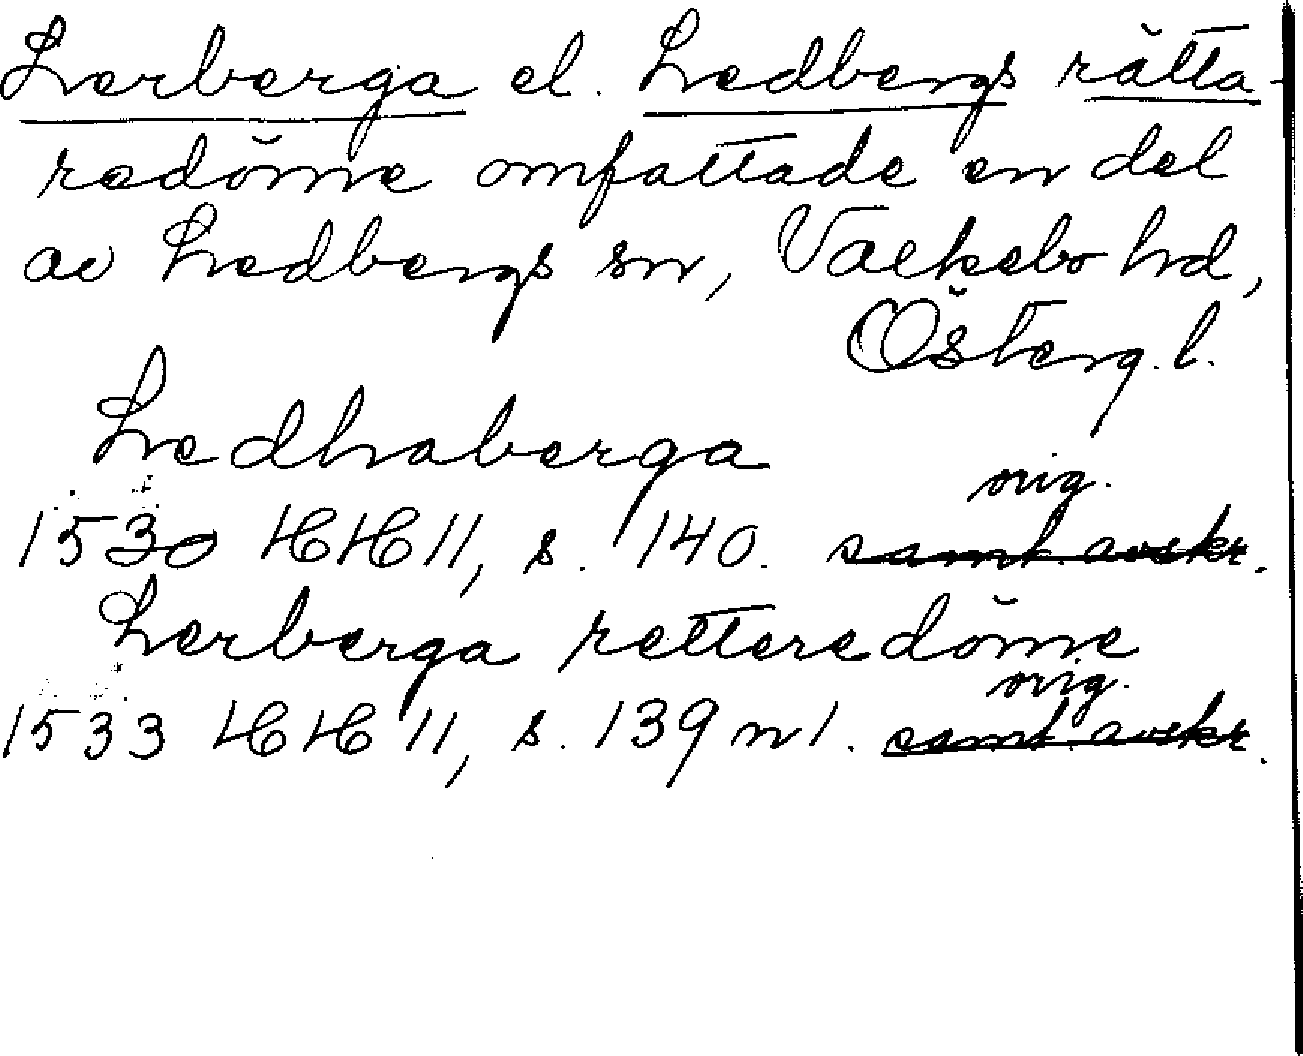 Lerberga el. Ledbergs rätta-
redöme omfattade en del
av Ledbergs sn, Valkebo hd,
Österg. l.
Ledhaberga
orig.
1530 HH 11, s. 140. samt. avskr.
Lerberga retteredöme
orig.
1533 HH 11, s. 139 n 1. samt. avskr.